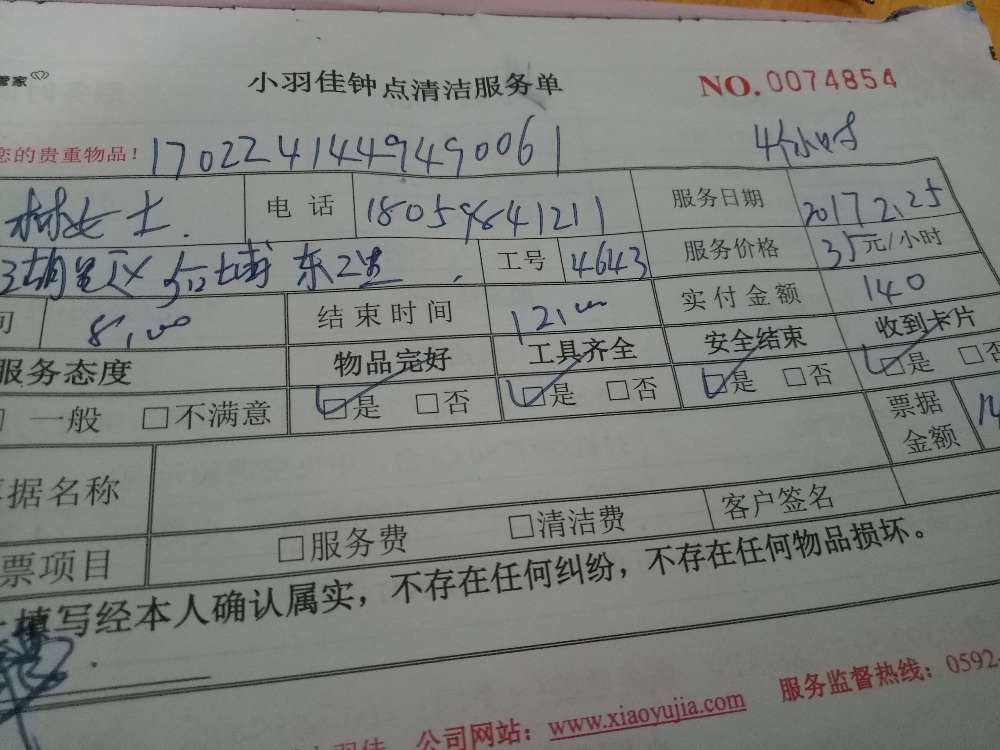 管家
小羽佳钟点清洁服务单 NO.0074854
您的贵重物品! 1702241449490061 4个小时
林女士. 电话 18059841211 服务日期 2017 2.25
东 工号 4643 服务价格 35元/小时
间 8:00 结束时间 12:00 实付金额 140
服务态度 物品完好 工具齐全 安全结束 收到卡片
□一般 □不满意 □是 □否 □是 □否 □是 □否 □是 □否
票据名称 票据金额 14
票项目 □服务费 □清洁费 客户签名
填写经本人确认属实，不存在任何纠纷，不存在任何物品损坏。
小羽佳 公司网站：www.xiaoyujia.com 服务监督热线：0592-